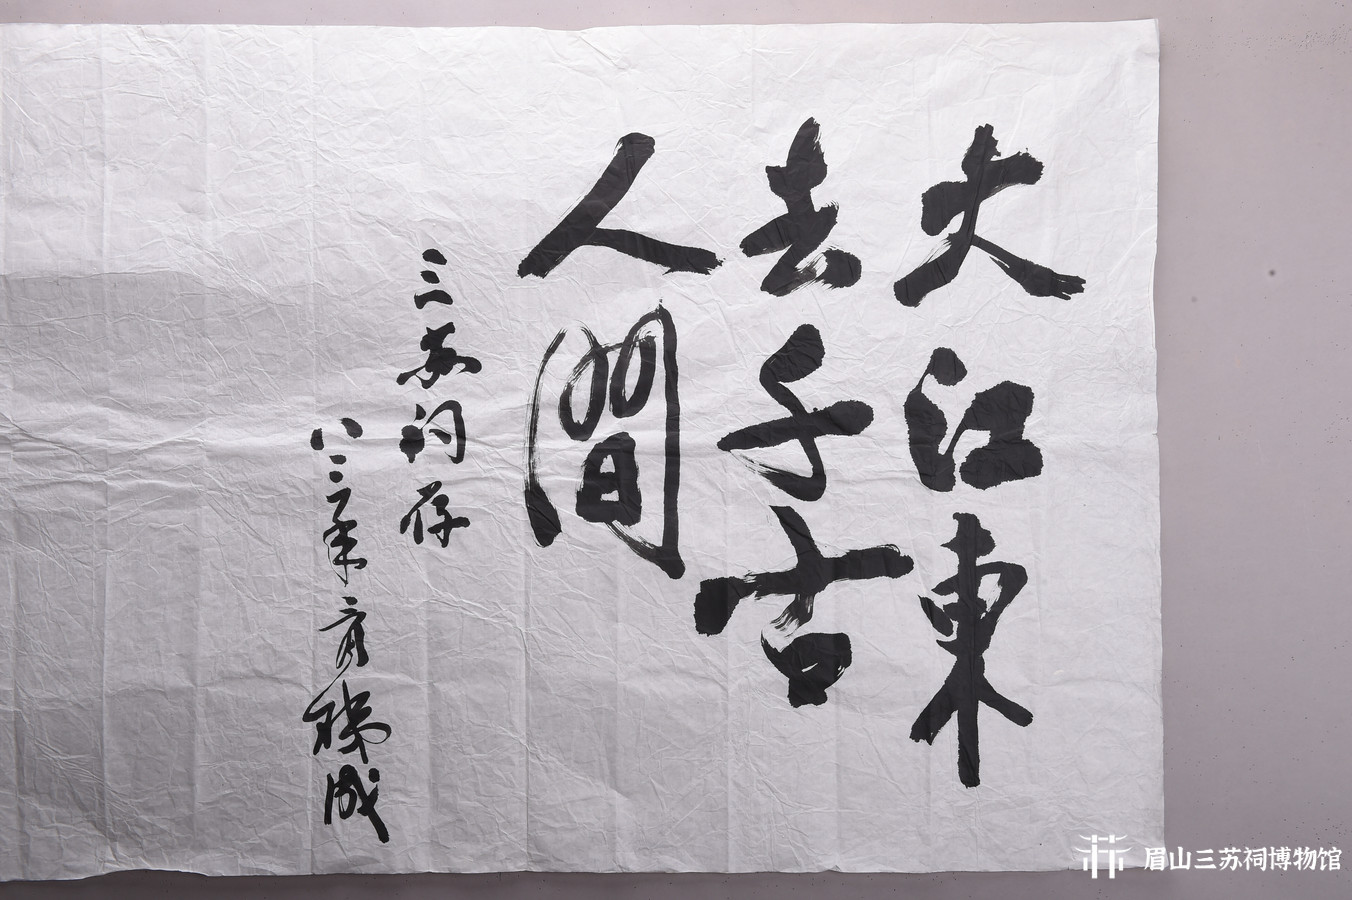 大江東
去千古
人間
三苏祠存
八三年 彦 成
眉山三苏祠博物馆